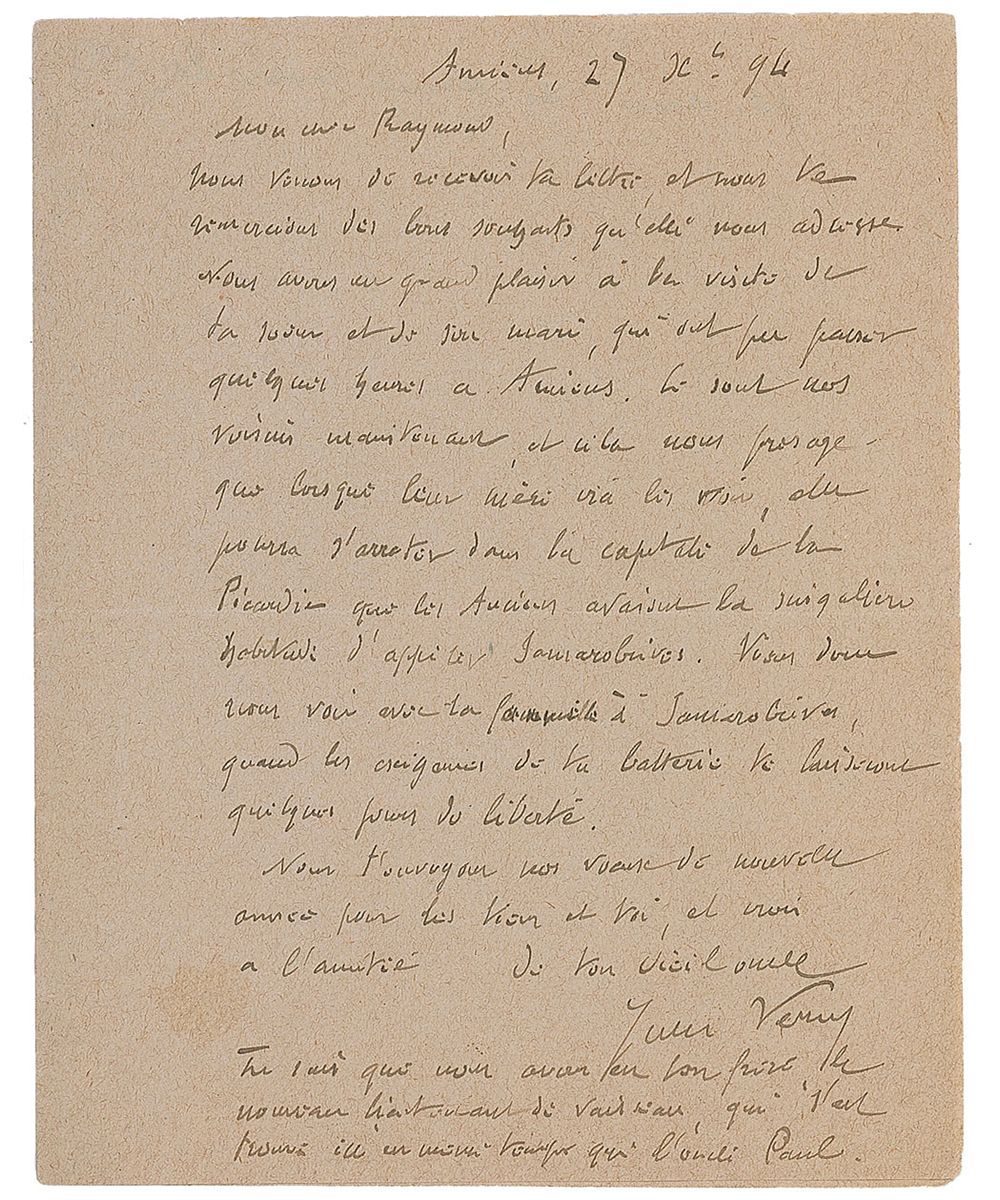 Amiens, 27 Xb. 94
Mon cher Raymond,
Nous venons de recevoir ta lettre, et nous te
remercions des bons souhaits qu'elle nous adresse.
Nous avons eu grand plaisir à la visite de
ta soeur et de son mari, qui ont pu passer
quelques heures a Amiens. Ce sont nos
voisins maintenant, et cela nous présage
que lorsque leur mère ira les voir, elle
pourra s'arrêter dans la capitale de la
Picardie que les Anciens avaient la singulière
habitude d'appeler Samarobrives. Viens donc
nous voir avec ta famille à Samarobriva,
quand les exigences de ta batterie te laisseront
quelques jours de liberté.
Nous t'envoyons nos voeux de nouvelle
année pour les tiens et toi, et crois
a l'amitié de ton vieil oncle
Jules Verne
Tu sais que nous avons eu ton frère le
nouveau lieutenant de vaisseau, qui s'est
trouvé ici en même temps que l'oncle Paul.